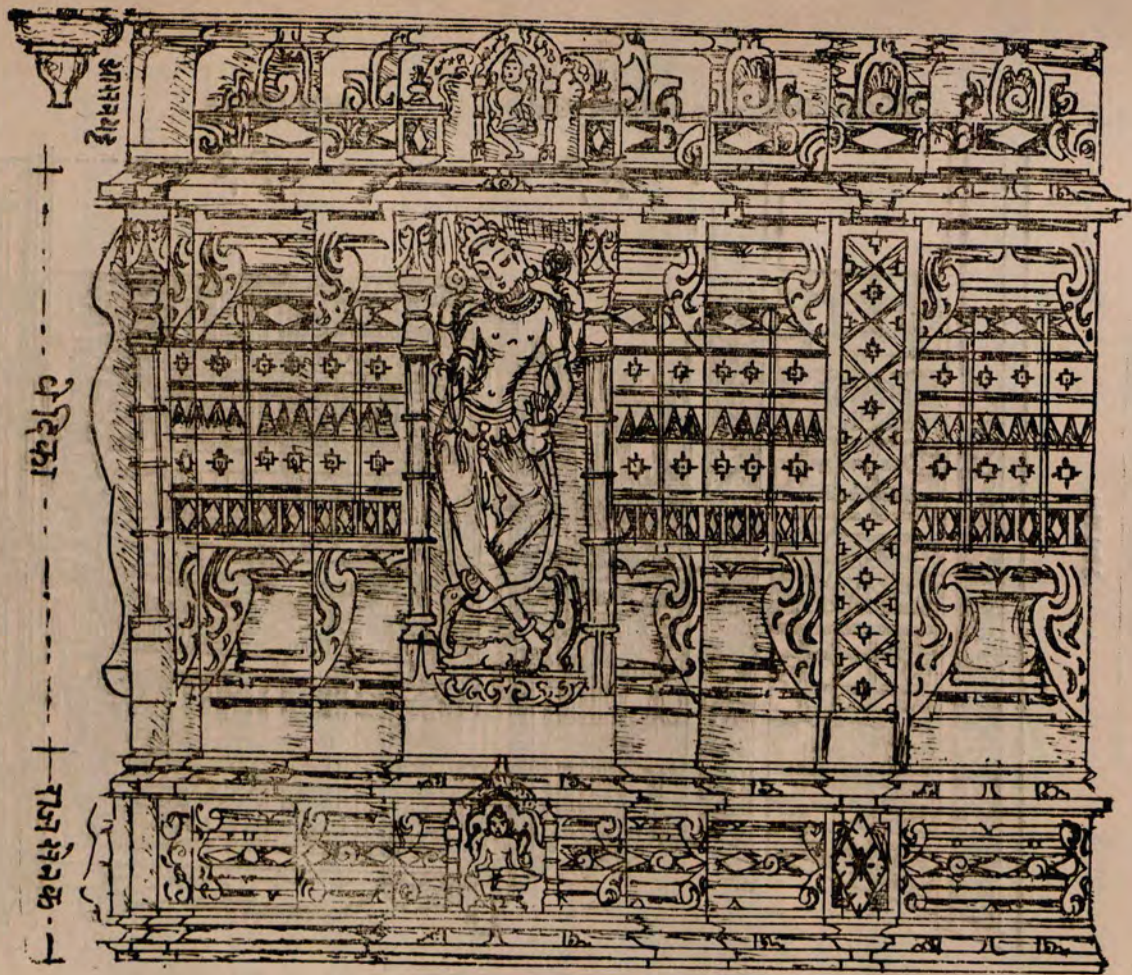 आसनपट्ट
वेदिका
राजसेनक